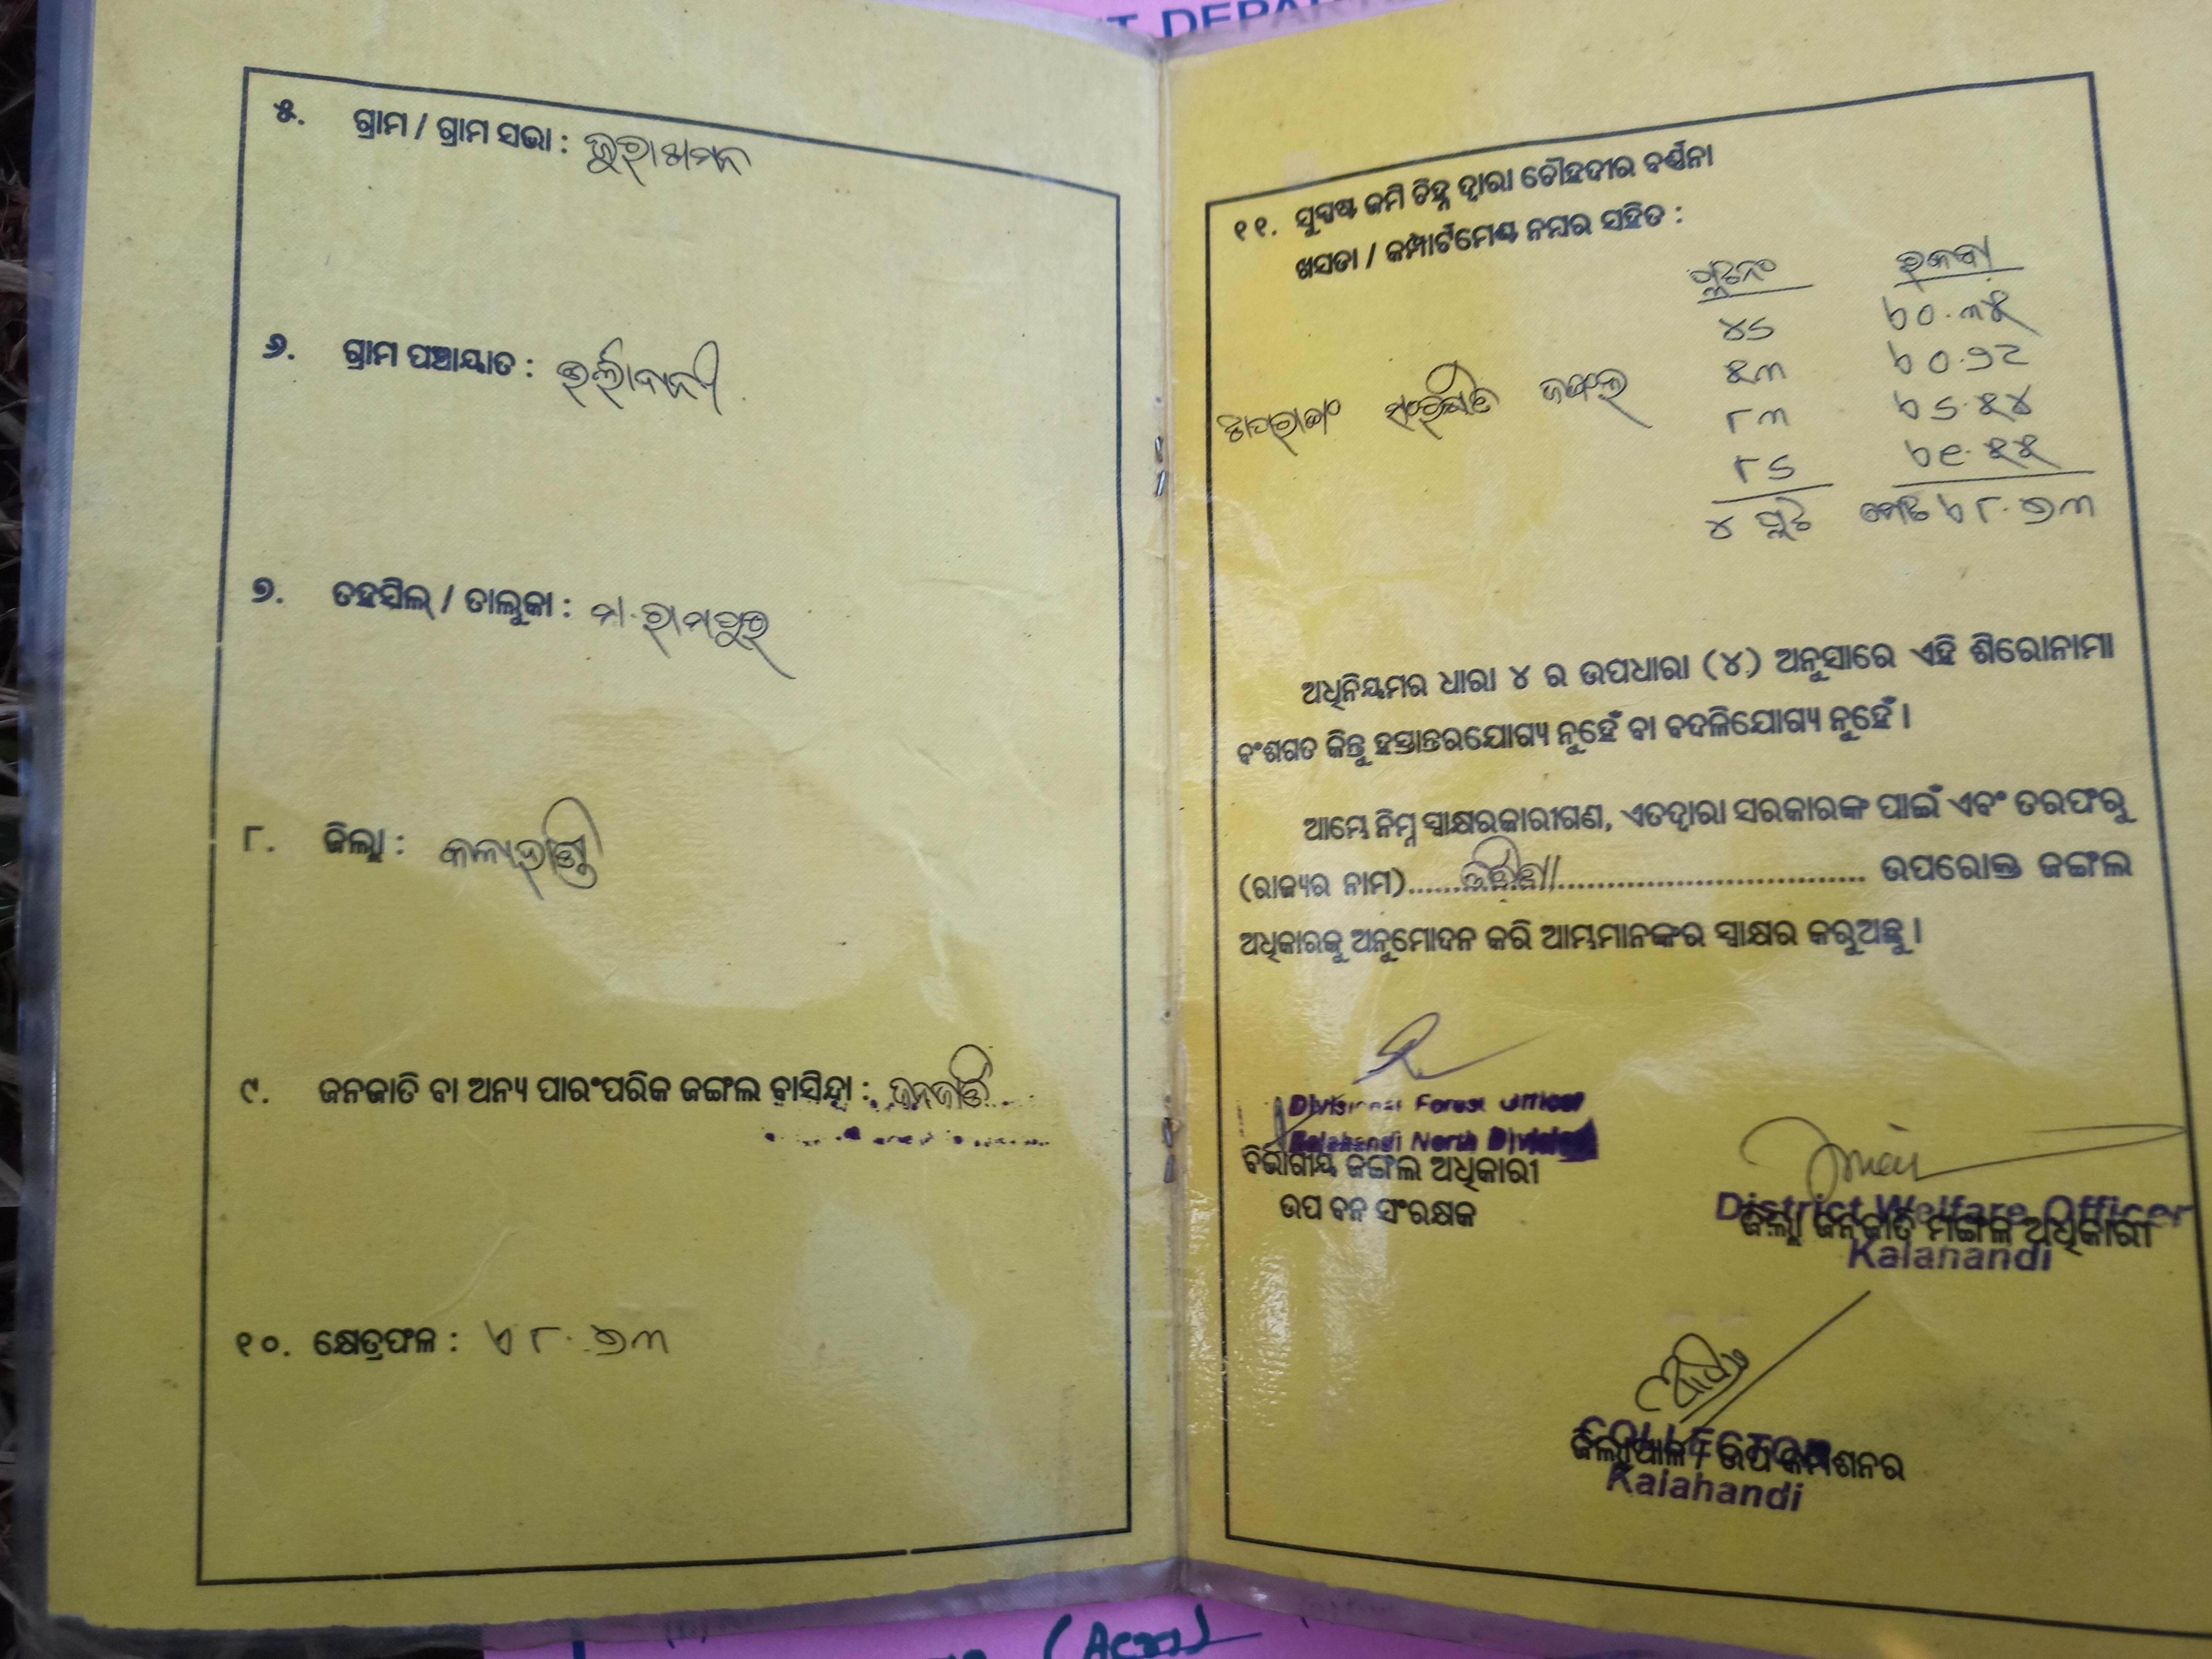 T DEPAR
୫. ଗ୍ରାମ / ଗ୍ରାମ ସଭା : ଭୁରାଖମନ
୬. ଗ୍ରାମ ପଞ୍ଚାୟାତ :
୭. ତହସିଲ୍ / ତାଲୁକା : ମା. ରାମପୁର
୮. ଜିଲ୍ଲା : କଳାହାଣ୍ଡି
୯. ଜନଜାତି ବା ଅନ୍ୟ ପାରଂପରିକ ଜଙ୍ଗଲ ବାସିନ୍ଦା : ଜନଜାତି
୧୦. କ୍ଷେତ୍ରଫଳ : ଏ ୮.୭୩
୧୧. ସୁସ୍ପଷ୍ଟ ଜମି ଚିହ୍ନ ଦ୍ୱାରା ଚୌହଦୀର ବର୍ଣ୍ଣନା
ଖସଡା / କମ୍ପାର୍ଟମେଣ୍ଟ ନମ୍ବର ସହିତ :
ପ୍ଲଟନଂ ରକବା
୪୨ ଏ୦.୩୫
୫୩ ଏ୦.୨୯
ସଂରକ୍ଷିତ ଜଙ୍ଗଲ
୮୩ ଏ୨.୫୪
୮୨ ଏ୧.୫୫
୪ ପ୍ଲଟ ମୋଟ ଏ ୮.୭୩
ଅଧିନିୟମର ଧାରା ୪ ର ଉପଧାରା (୪) ଅନୁସାରେ ଏହି ଶିରୋନାମା
ବଂଶଗତ କିନ୍ତୁ ହସ୍ତାନ୍ତରଯୋଗ୍ୟ ନୁହେଁ ବା ବଦଳିଯୋଗ୍ୟ ନୁହେଁ ।
ଆମ୍ଭେ ନିମ୍ନ ସ୍ୱାକ୍ଷରକାରୀଗଣ, ଏତଦ୍ୱାରା ସରକାରଙ୍କ ପାଇଁ ଏବଂ ତରଫରୁ
(ରାଜ୍ୟର ନାମ)...... ଓଡ଼ିଶା ...... ଉପରୋକ୍ତ ଜଙ୍ଗଲ
ଅଧିକାରକୁ ଅନୁମୋଦନ କରି ଆମ୍ଭମାନଙ୍କର ସ୍ୱାକ୍ଷର କରୁଅଛୁ ।
Divisional Forest Officer
Kalahandi North Division
ବିଭାଗୀୟ ଜଙ୍ଗଲ ଅଧିକାରୀ
ଉପ ବନ ସଂରକ୍ଷକ
District Welfare Officer
ଜିଲ୍ଲା ଜନଜାତି ମଙ୍ଗଳ ଅଧିକାରୀ
Kalahandi
COLLECTOR
ଜିଲ୍ଲାପାଳ / ଉପ କମିଶନର
Kalahandi
(Acres)